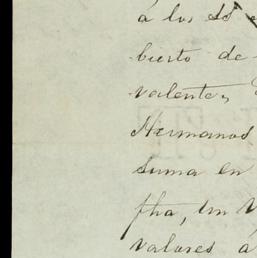 á los
bierto de
valente,
Hermanos
suma en
fha, un
valores á